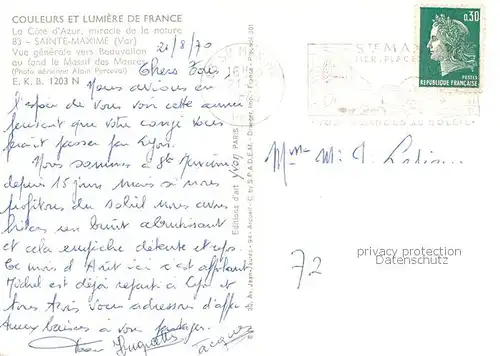 COULEURS ET LUMIÈRE DE FRANCE
La Côte d'Azur, miracle de la nature
83 - SAINTE-MAXIME (Var)
Vue générale vers Beauvallon
au fond le Massif des Maures
(Photo aérienne Alain Perceval)
E. K. B. 1203 N
21/8/70
Chers Tous
Nous avions eu
l'espoir de vous voir cette année
pensant que votre congé vous
ferait passer par Lyon.
Nous sommes à Ste Maxime
depuis 15 jours mais si nous
profitons du soleil nous avons
un bruit abrutissant
et cela empêche détente et repos.
Ce mois d'Août ici c'est affolant
Michel est déjà reparti à Lyon et
tous trois vous adressons d'affec
tueux baisers à vous partager.
Huguette
Jacques
Editions d'art yvon PARIS
0,30
POSTES
REPUBLIQUE FRANÇAISE
STE MAX
MER, PLAGE
Mme M.
72
privacy protection
Datenschutz